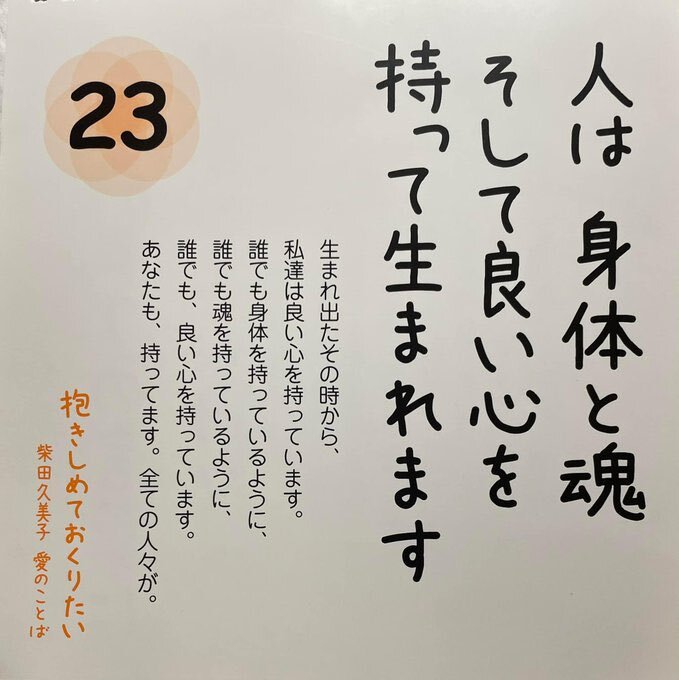 人は 身体と魂
そして良い心を
持って生まれます
23
生まれ出たその時から、
私達は良い心を持っています。
誰でも身体を持っているように、
誰でも魂を持っているように、
誰でも、良い心を持っています。
あなたも、持ってます。全ての人々が。
抱きしめておくりたい
柴田久美子 愛のことば